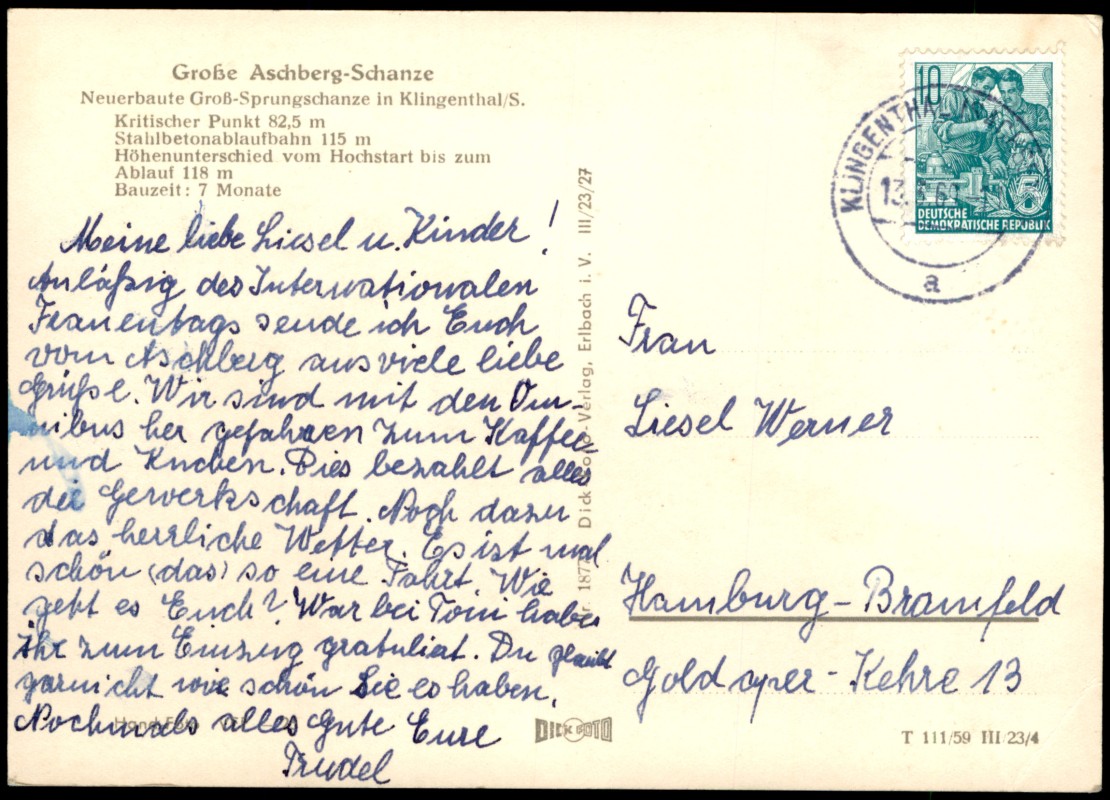 Große Aschberg-Schanze
Neuerbaute Groß-Sprungschanze in Klingenthal/S.
Kritischer Punkt 82,5 m
Stahlbetonablaufbahn 115 m
Höhenunterschied vom Hochstart bis zum
Ablauf 118 m
Bauzeit: 7 Monate
Meine liebe Liesel u. Kinder!
Anläßig des Internationalen
Frauentags sende ich Euch
vom Aschberg aus viele liebe
Grüße. Wir sind mit den Om-
nibus her gefahren zum Kaffee
und Kuchen. Dies bezahlt alles
die Gewerkschaft. Noch dazu
das herrliche Wetter. Es ist mal
schön (das) so eine Fahrt. Wie
geht es Euch? War bei Tom habe
ihr zum Einzug gratuliert. Du glaubst
garnicht wie schön Sie es haben.
Nochmals alles Gute Eure
Trudel
Verlag, Erlbach i. V. III/23/27
DICK FOTO
10
DEUTSCHE
DEMOKRATISCHE REPUBLIK
5
KLINGENTHAL
a
Frau
Liesel Werner
Hamburg-Bramfeld
Goldaper-Kehre 13
T 111/59 III 23/4